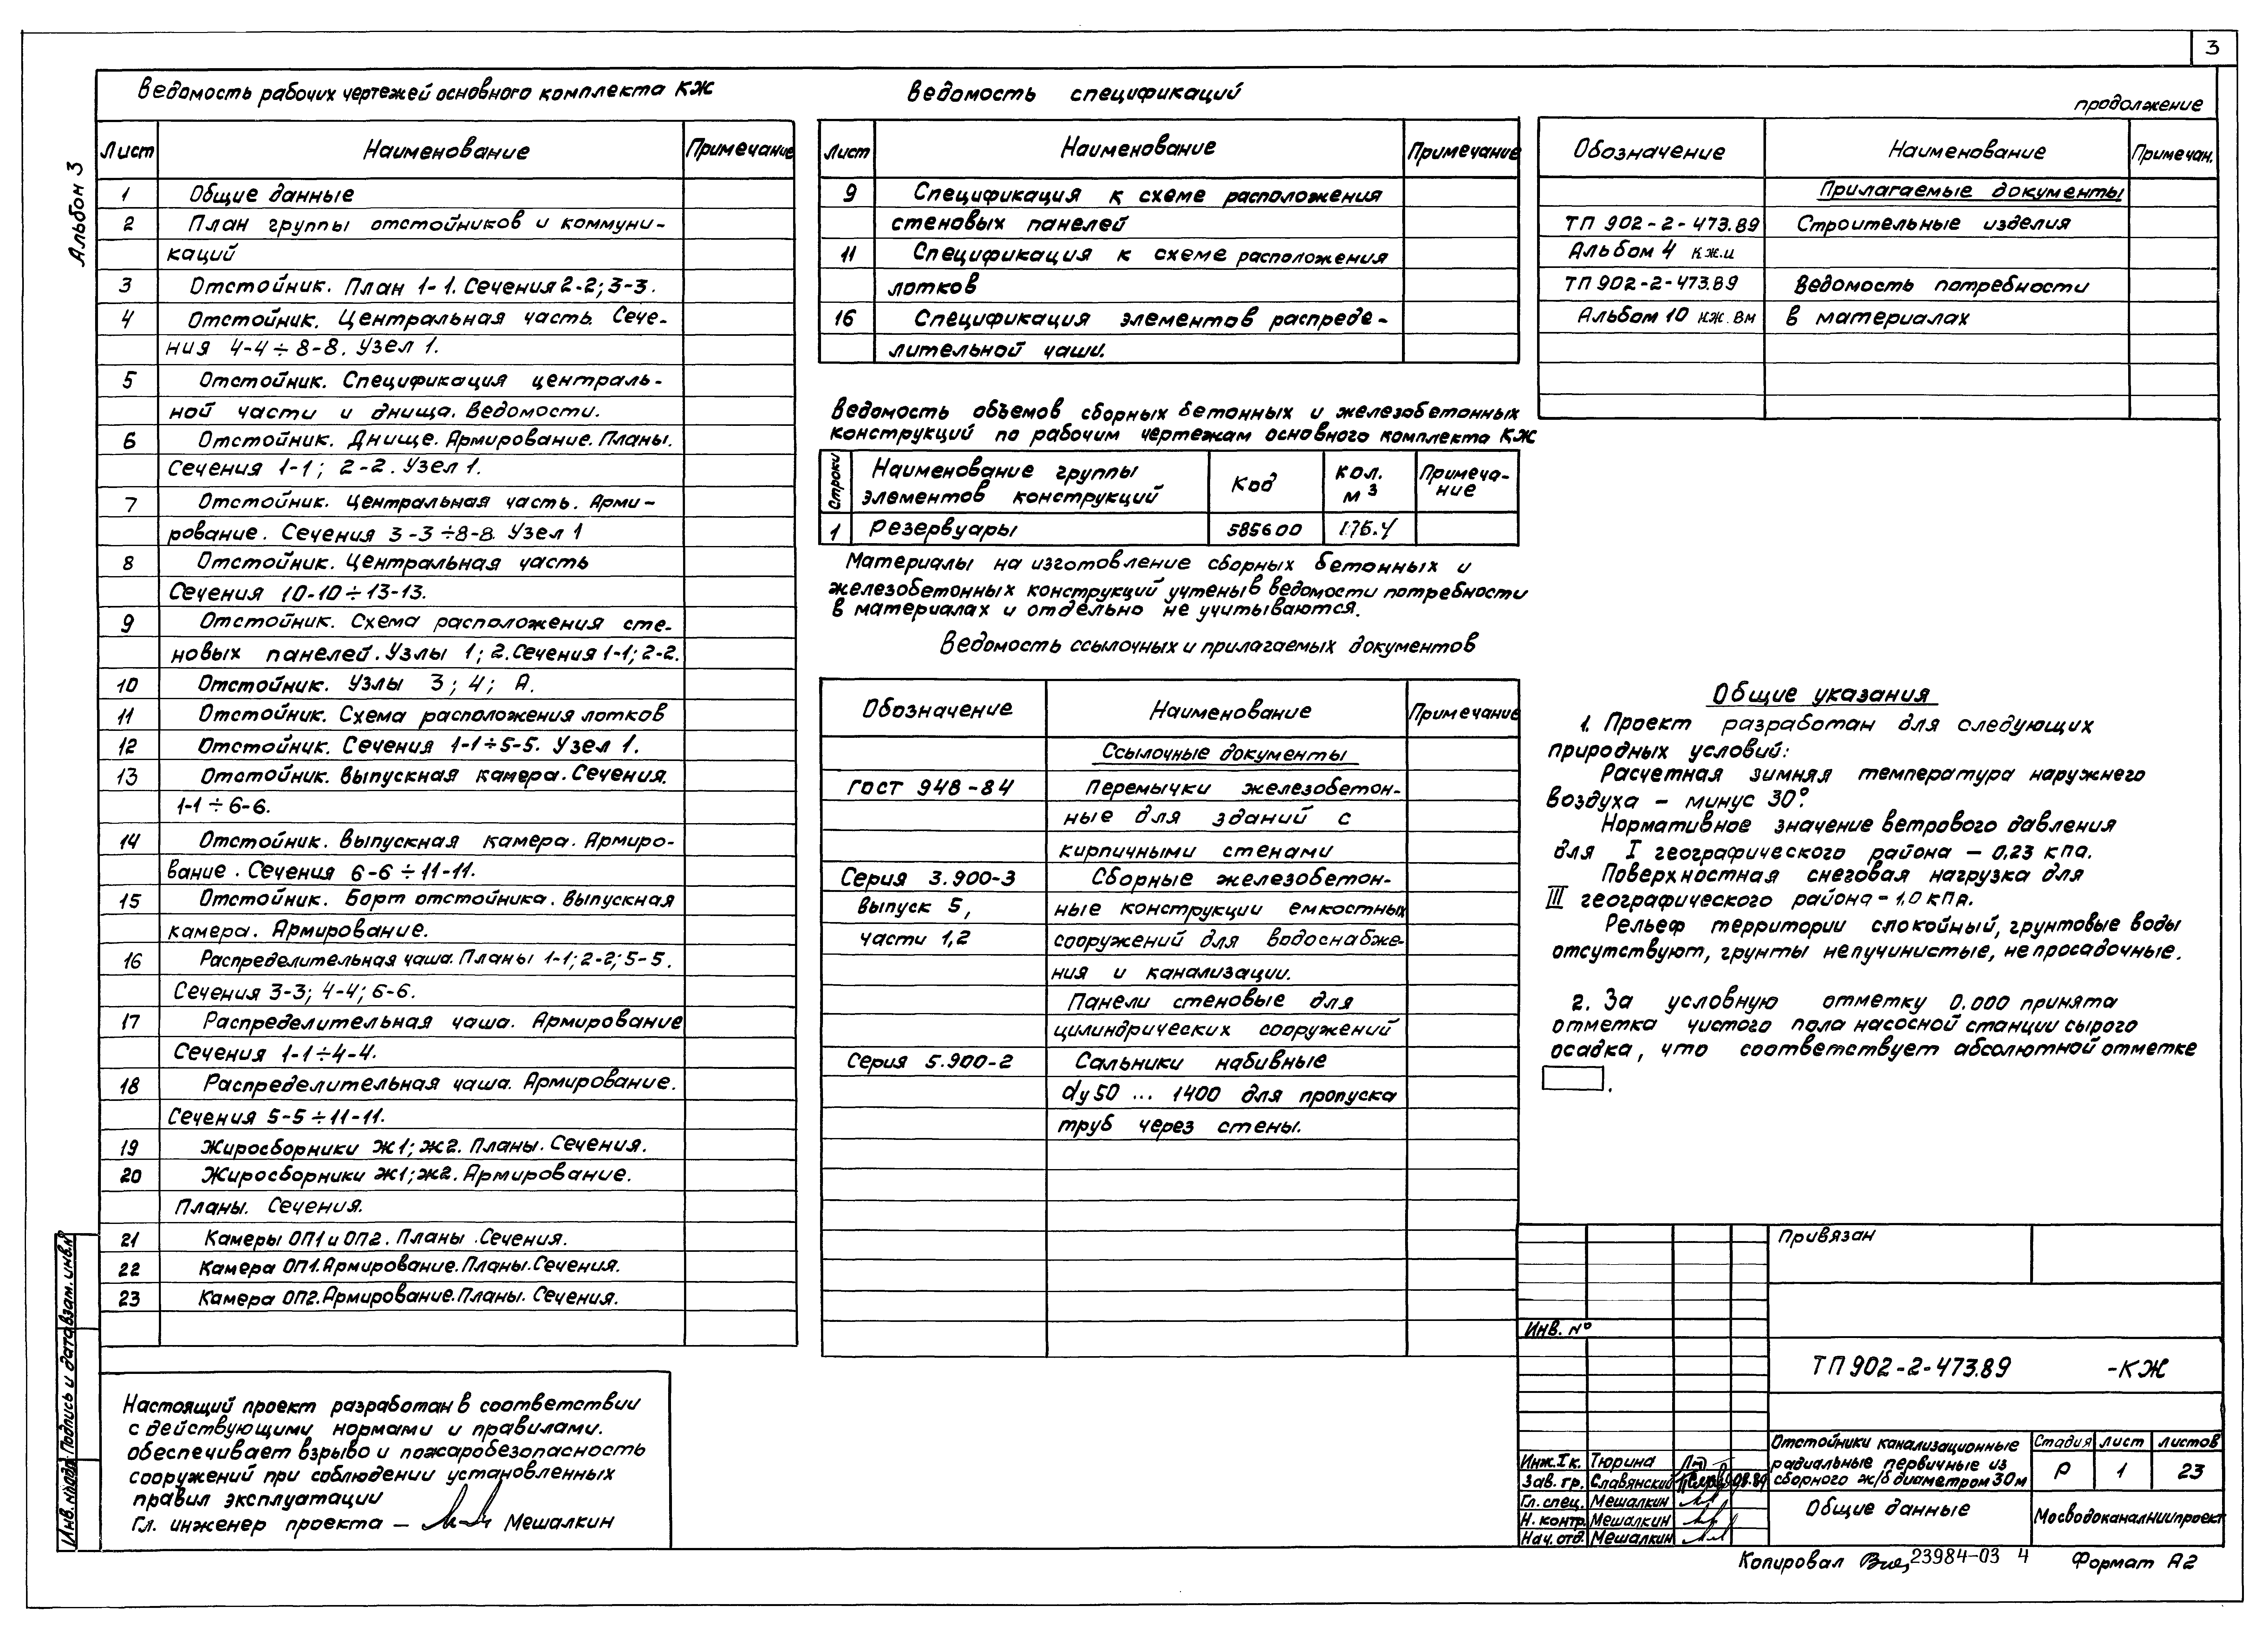 3
Альбом 3
Ведомость рабочих чертежей основного комплекта КЖ
Лист Наименование Примечание
1 Общие данные
2 План группы отстойников и коммуни-
каций
3 Отстойник. План 1-1. Сечения 2-2; 3-3.
4 Отстойник. Центральная часть. Сече-
ния 4-4÷8-8. Узел 1.
5 Отстойник. Спецификация централь-
ной части и днища. Ведомости.
6 Отстойник. Днище. Армирование. Планы.
Сечения 1-1; 2-2. Узел 1.
7 Отстойник. Центральная часть. Арми-
рование. Сечения 3-3÷8-8. Узел 1
8 Отстойник. Центральная часть
Сечения 10-10÷13-13.
9 Отстойник. Схема расположения сте-
новых панелей. Узлы 1; 2. Сечения 1-1; 2-2.
10 Отстойник. Узлы 3; 4; А.
11 Отстойник. Схема расположения лотков
12 Отстойник. Сечения 1-1÷5-5. Узел 1.
13 Отстойник. Выпускная камера. Сечения.
1-1÷6-6.
14 Отстойник. Выпускная камера. Армиро-
вание. Сечения 6-6÷11-11.
15 Отстойник. Борт отстойника. Выпускная
камера. Армирование.
16 Распределительная чаша. Планы 1-1; 2-2; 5-5.
Сечения 3-3; 4-4; 6-6.
17 Распределительная чаша. Армирование
Сечения 1-1÷4-4.
18 Распределительная чаша. Армирование.
Сечения 5-5÷11-11.
19 Жиросборники Ж1; Ж2. Планы. Сечения.
20 Жиросборники Ж1; Ж2. Армирование.
Планы. Сечения.
21 Камеры ОП1 и ОП2. Планы. Сечения.
22 Камера ОП1. Армирование. Планы. Сечения.
23 Камера ОП2. Армирование. Планы. Сечения.
Настоящий проект разработан в соответствии
с действующими нормами и правилами.
обеспечивает взрыво и пожаробезопасность
сооружений при соблюдении установленных
правил эксплуатации
Гл. инженер проекта — Мешалкин
Ведомость спецификаций
Лист Наименование Примечание
9 Спецификация к схеме расположения
стеновых панелей
11 Спецификация к схеме расположения
лотков
16 Спецификация элементов распреде-
лительной чаши.
Ведомость объемов сборных бетонных и железобетонных
конструкций по рабочим чертежам основного комплекта КЖ
Строки Наименование группы элементов конструкций Код Кол. м3 Примеча-
ние
1 Резервуары 585600 175.4
Материалы на изготовление сборных бетонных и
железобетонных конструкций учтены в ведомости потребности
в материалах и отдельно не учитываются.
Ведомость ссылочных и прилагаемых документов
Обозначение Наименование Примечание
Ссылочные документы
ГОСТ 948-84 Перемычки железобетон-
ные для зданий с
кирпичными стенами
Серия 3.900-3 Сборные железобетон-
выпуск 5, ные конструкции емкостных
части 1,2 сооружений для водоснабже-
ния и канализации.
Панели стеновые для
цилиндрических сооружений
Серия 5.900-2 Сальники набивные
dу50 ... 1400 для пропуска
труб через стены.
продолжение
Обозначение Наименование Примечан.
Прилагаемые документы
ТП 902-2-473.89 Строительные изделия
Альбом 4 кж.и
ТП 902-2-473.89 Ведомость потребности
Альбом 10 кж.вм в материалах
Общие указания
1. Проект разработан для следующих
природных условий:
Расчетная зимняя температура наружнего
воздуха – минус 30°.
Нормативное значение ветрового давления
для I географического района – 0,23 кПа.
Поверхностная снеговая нагрузка для
III географического района – 1,0 кПа.
Рельеф территории спокойный, грунтовые воды
отсутствуют, грунты непучинистые, непросадочные.
2. За условную отметку 0.000 принята
отметка чистого пола насосной станции сырого
осадка, что соответствует абсолютной отметке
.
Привязан
Инв. №
ТП 902-2-473.89 -КЖ
Инж. I к. Тюрина
Зав. гр. Славянский 08.89
Гл. спец. Мешалкин
Н. контр. Мешалкин
Нач. отд. Мешалкин
Отстойники канализационные
радиальные первичные из
сборного ж/б диаметром 30м
Стадия Лист Листов
Р 1 23
Общие данные
Мосводоканалниипроект
Копировал 23984-03 4 Формат А2
Инв. № подл. Подпись и дата Взам. инв. №